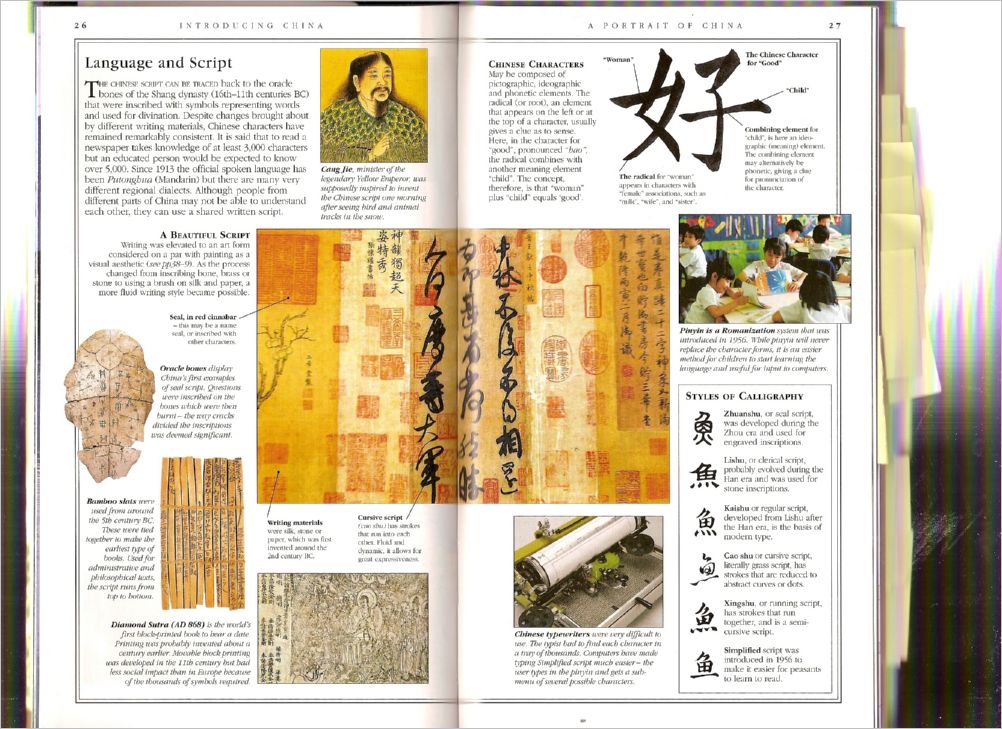 26
INTRODUCING CHINA
Language and Script
THE CHINESE SCRIPT CAN BE TRACED back to the oracle
bones of the Shang dynasty (16th–11th centuries BC)
that were inscribed with symbols representing words
and used for divination. Despite changes brought about
by different writing materials, Chinese characters have
remained remarkably consistent. It is said that to read a
newspaper takes knowledge of at least 3,000 characters
but an educated person would be expected to know
over 5,000. Since 1913 the official spoken language has
been Putonghua (Mandarin) but there are many very
different regional dialects. Although people from
different parts of China may not be able to understand
each other, they can use a shared written script.
Cang Jie, minister of the
legendary Yellow Emperor, was
supposedly inspired to invent
the Chinese script one morning
after seeing bird and animal
tracks in the snow.
A BEAUTIFUL SCRIPT
Writing was elevated to an art form
considered on a par with painting as a
visual aesthetic (see pp38–9). As the process
changed from inscribing bone, brass or
stone to using a brush on silk and paper, a
more fluid writing style became possible.
Seal, in red cinnabar
– this may be a name
seal, or inscribed with
other characters.
Oracle bones display
China's first examples
of seal script. Questions
were inscribed on the
bones which were then
burnt – the way cracks
divided the inscriptions
was deemed significant.
Bamboo slats were
used from around
the 5th century BC.
These were tied
together to make the
earliest type of
books. Used for
administrative and
philosophical texts,
the script runs from
top to bottom.
神韻獨超天
姿特秀
Writing materials
were silk, stone or
paper, which was first
invented around the
2nd century BC.
Cursive script
(cao shu) has strokes
that run into each
other. Fluid and
dynamic, it allows for
great expressiveness.
Diamond Sutra (AD 868) is the world's
first block-printed book to bear a date.
Printing was probably invented about a
century earlier. Movable block printing
was developed in the 11th century but had
less social impact than in Europe because
of the thousands of symbols required.
A PORTRAIT OF CHINA
27
CHINESE CHARACTERS
May be composed of
pictographic, ideographic
and phonetic elements. The
radical (or root), an element
that appears on the left or at
the top of a character, usually
gives a clue as to sense.
Here, in the character for
"good", pronounced "hao",
the radical combines with
another meaning element
"child". The concept,
therefore, is that "woman"
plus "child" equals 'good'.
"Woman"
好
The Chinese Character
for "Good"
"Child"
Combining element for
"child", is here an ideo-
graphic (meaning) element.
The combining element
may alternatively be
phonetic, giving a clue
for pronunciation of
the character.
The radical for "woman"
appears in characters with
"female" associations, such as
"milk", "wife", and "sister".
Pinyin is a Romanization system that was
introduced in 1956. While pinyin will never
replace the character forms, it is an easier
method for children to start learning the
language and useful for input to computers.
STYLES OF CALLIGRAPHY
魚
Zhuanshu, or seal script,
was developed during the
Zhou era and used for
engraved inscriptions.
魚
Lishu, or clerical script,
probably evolved during the
Han era and was used for
stone inscriptions.
魚
Kaishu or regular script,
developed from Lishu after
the Han era, is the basis of
modern type.
魚
Cao shu or cursive script,
literally grass script, has
strokes that are reduced to
abstract curves or dots.
魚
Xingshu, or running script,
has strokes that run
together, and is a semi-
cursive script.
鱼
Simplified script was
introduced in 1956 to
make it easier for peasants
to learn to read.
Chinese typewriters were very difficult to
use. The typist had to find each character in
a tray of thousands. Computers have made
typing Simplified script much easier – the
user types in the pinyin and gets a sub-
menu of several possible characters.